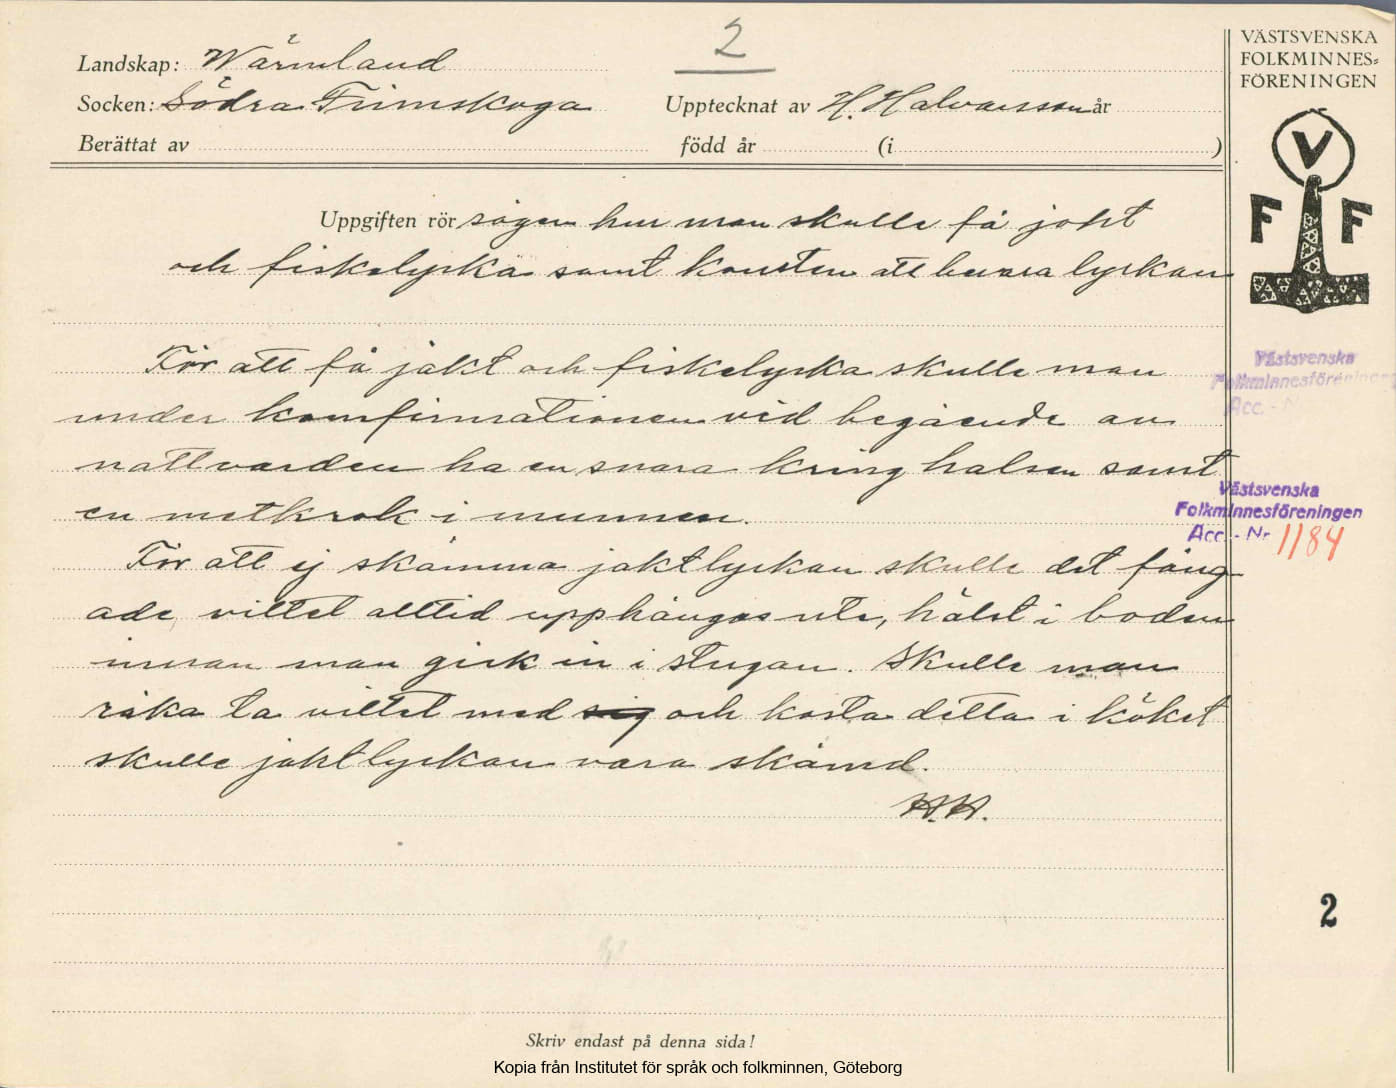 2
Landskap: Wärmland
Socken: Södra Finnskoga Upptecknat av H. Halvarsson år
Berättat av född år (i )
Uppgiften rör sägen hur man skulle få jakt
och fiskelycka samt konsten att bevara lyckan
För att få jakt och fiskelycka skulle man
under komfirmationen vid begående av
nattvarden ha en snara kring halsen samt
en metkrok i munnen.
För att ej skämma jaktlyckan skulle det fång
ade viltet alltid upphängas ute, hälst i boden
innan man gick in i stugan. Skulle man
råka ta viltet med sig och kasta detta i köket
skulle jaktlyckan vara skämd.
H.H.
Skriv endast på denna sida!
Kopia från Institutet för språk och folkminnen, Göteborg
VÄSTSVENSKA
FOLKMINNES-
FÖRENINGEN
V
F F
Västsvenska
Folkminnesföreningen
Acc. - N
Västsvenska
Folkminnesföreningen
Acc. - Nr 1184
2